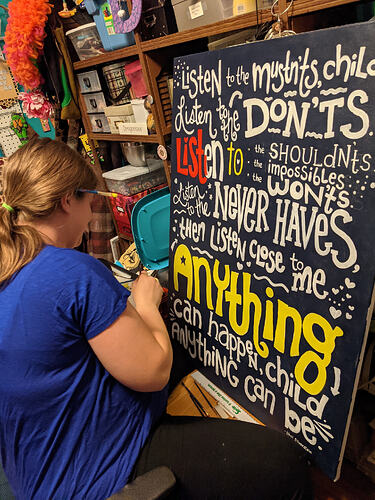 Listen to the mustn'ts, child
Listen to the DON'TS.
Listen to the SHOULDN'TS
the impossibles
the WON'TS
Listen to the NEVER HAVES,
then Listen close to me
ANYthing
can happen, child
ANYTHING can be.